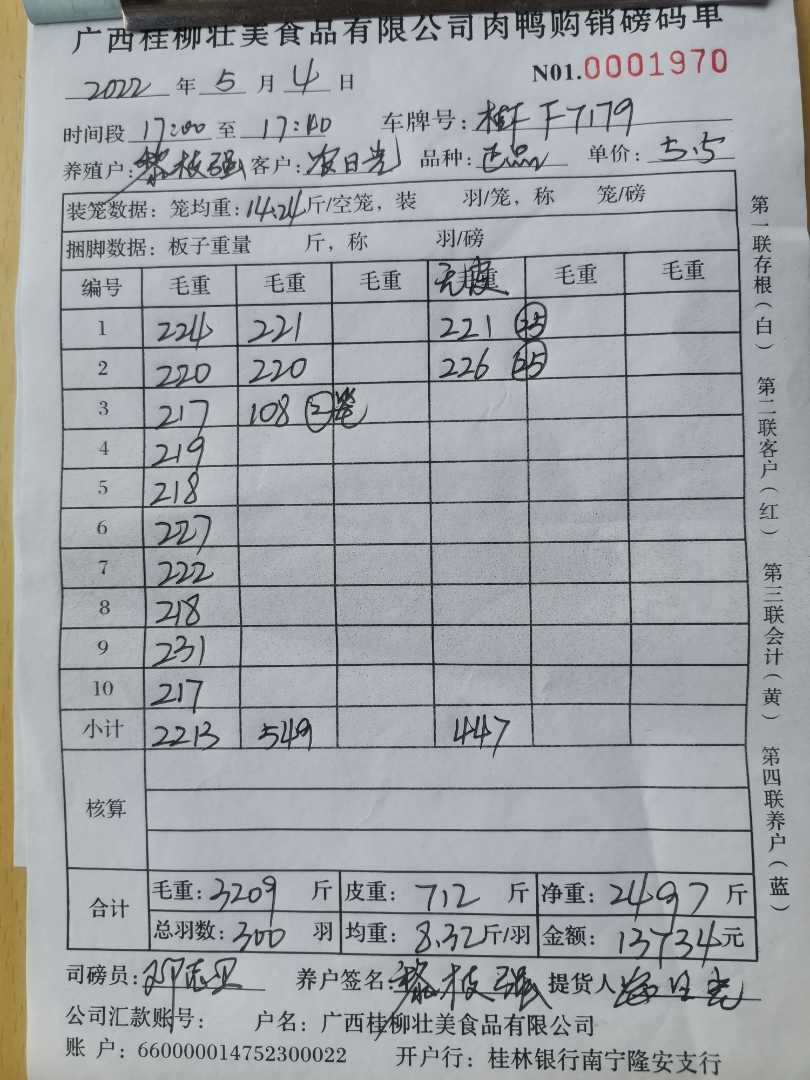 广西桂柳壮美食品有限公司肉鸭购销磅码单
2022 年 5 月 4 日 N01.0001970
时间段 17:00 至 17:40 车牌号: 下7179
养殖户: 黎枝强 客户: 农日光 品种: 正品 单价: 5.5
装笼数据: 笼均重: 14.24 斤/空笼, 装 羽/笼, 称 笼/磅
捆脚数据: 板子重量 斤, 称 羽/磅
编号 毛重 毛重 毛重 毛重 毛重
1 224 221 221 25
2 220 220 226 25
3 217 108 2 笼
4 219
5 218
6 227
7 222
8 218
9 231
10 217
小计 2213 549 447
核算
合计 毛重: 3209 斤 皮重: 712 斤 净重: 2497 斤
总羽数: 300 羽 均重: 8.32 斤/羽 金额: 13734 元
司磅员: 养户签名: 黎枝强 提货人 农日光
公司汇款账号: 户名: 广西桂柳壮美食品有限公司
账 户: 660000014752300022 开户行: 桂林银行南宁隆安支行
第一联存根(白) 第二联客户(红) 第三联会计(黄) 第四联养户(蓝)